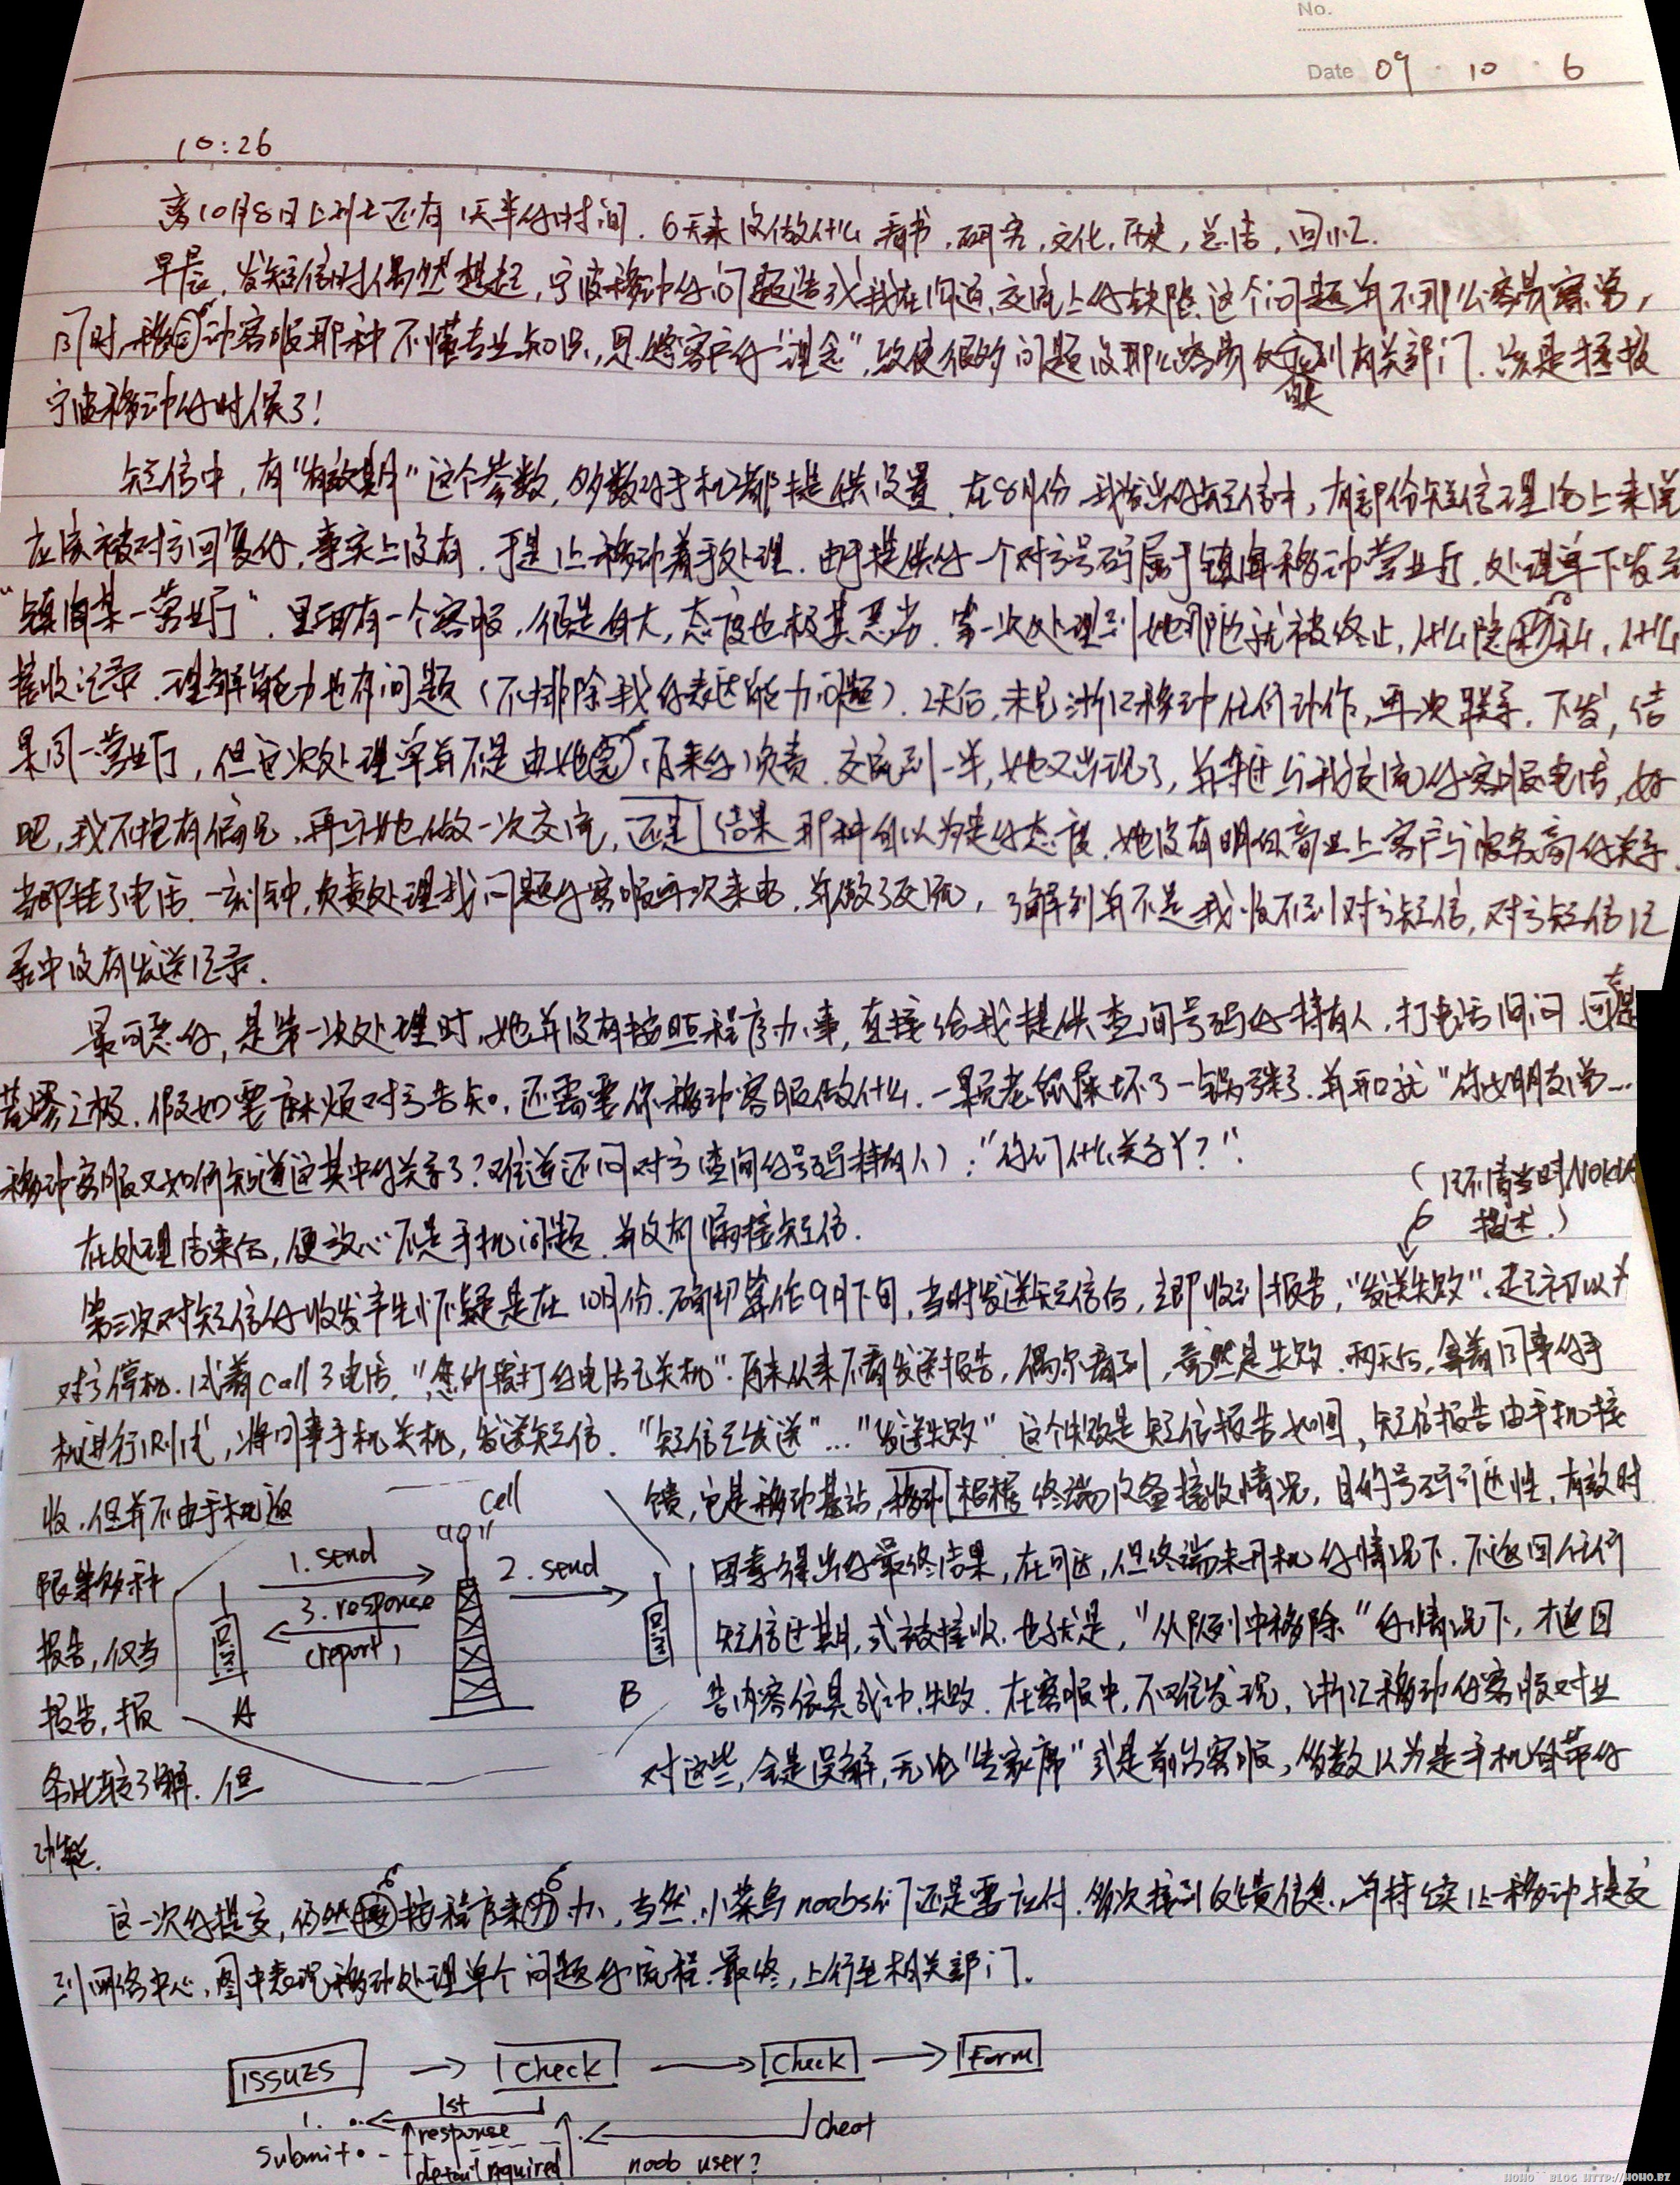 No.
Date 09 · 10 · 6
10:26
离10月8日上班还有1天半的时间. 6天来没做什么. 看书, 研究, 文化, 历史, 总结, 回忆.
早晨, 发短信时偶然想起, 宁波移动的问题造成我在沟通、交流上的缺陷. 这个问题并不那么容易察觉,
同时, 移动客服那种不懂专业知识, 忽悠客户的"理念", 致使很多问题没那么容易反馈到有关部门. 该是拯救
宁波移动的时候了!
短信中, 有"有效期"这个参数, 多数的手机都提供设置. 在8月份, 我发出的短信中, 有部份短信理论上来说
应该被对方回复的, 事实上没有. 于是让移动着手处理. 由于提供的一个对方号码属于镇海移动营业厅. 处理单下发至
"镇海某一营业厅". 里面有一个客服, 很是自大, 态度也极其恶劣. 第一次处理到她那边就被终止, 什么隐私, 什么
接收记录. 理解能力也有问题 (不排除我的表达能力问题). 2天后, 未见浙江移动任何动作, 再次联系. 下发, 结
果同一营业厅, 但这次处理单并不是由她负责. 交流到一半, 她又出现了, 并抢过与我交流的客服电话, 好
吧, 我不抱有偏见, 再与她做一次交流, 结果那种自以为是的态度. 她没有明白商业上客户与服务商的关系.
当即挂了电话. 一刻钟, 负责处理我问题的客服再次来电, 并做了交流, 了解到并不是我收不到对方短信, 对方短信记
录中没有发送记录.
最可恶的, 是第一次处理时, 她并没有按照程序办事, 直接给我提供查询号码的持有人, 打电话询问.
荒谬之极. 假如要麻烦对方告知, 还需要你移动客服做什么. 一颗老鼠屎坏了一锅粥. 并和我"你女朋友说...
移动客服又如何知道这其中的关系了? 难道还问对方(查询的号码持有人): "你们什么关系丫?".
(记不清当时NOKIA
描述.)
在处理结束后, 便放心不是手机问题. 并没有漏接短信.
第三次对短信的收发产生怀疑是在10月份. 确切算作9月下旬, 当时发送短信后, 立即收到报告, "发送失败". 起初以为
对方停机. 试着call了电话, "您所拨打的电话已关机". 原来从来不看发送报告, 偶尔看到, 竟然是失败. 两天后, 拿着同事的手
机进行测试, 将同事手机关机, 发送短信. "短信已发送"... "发送失败". 这个失败是短信报告如图, 短信报告由手机接
收, 但并不由手机返
馈, 它是移动基站, 移动根据终端设备接收情况, 目的号码可达性, 有效时
限等多种
因素得出的最终结果, 在可达, 但终端未开机的情况下. 不返回任何
报告, 仅当
短信过期, 或被接收. 也就是, "从队列中移除"的情况下, 才返回
报告, 报
告内容仅具成功, 失败. 在客服中, 不难发现, 浙江移动的客服对业
务比较了解. 但
对这些, 全是误解, 无论"专家席"或是前台客服, 多数认为是手机自带的
功能.
cell
1. send
2. send
3. response
(report)
A
B
这一次的提交, 仍然按程序来办, 当然, 小菜鸟noobs们还是需应付. 多次接到反馈信息, 并持续让移动提交
到网络中心, 图中表现移动处理单个问题的流程. 最终, 上行至相关部门.
ISSUES
Check
Check
Form
1.
submit
1st
response
detail required
noob user?
cheat
HOHO BLOG HTTP://HOHO.BZ